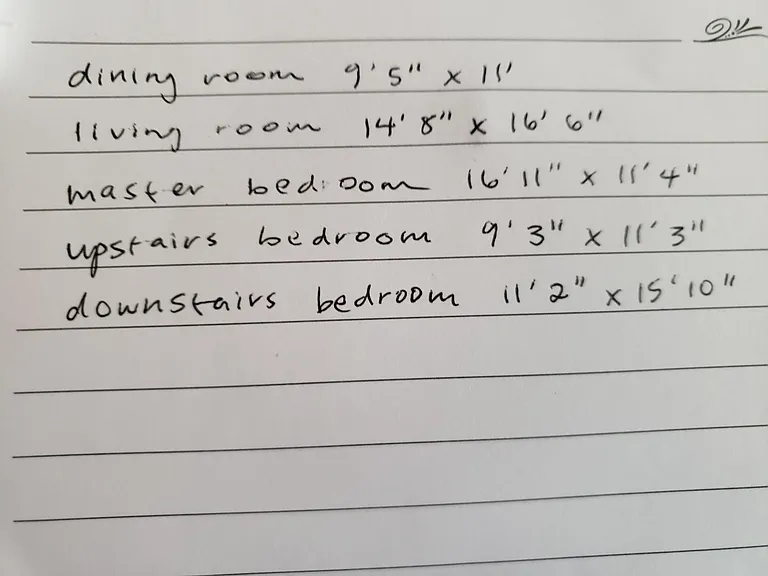 dining room 9'5" x 11'
living room 14'8" x 16'6"
master bedroom 16'11" x 11'4"
upstairs bedroom 9'3" x 11'3"
downstairs bedroom 11'2" x 15'10"